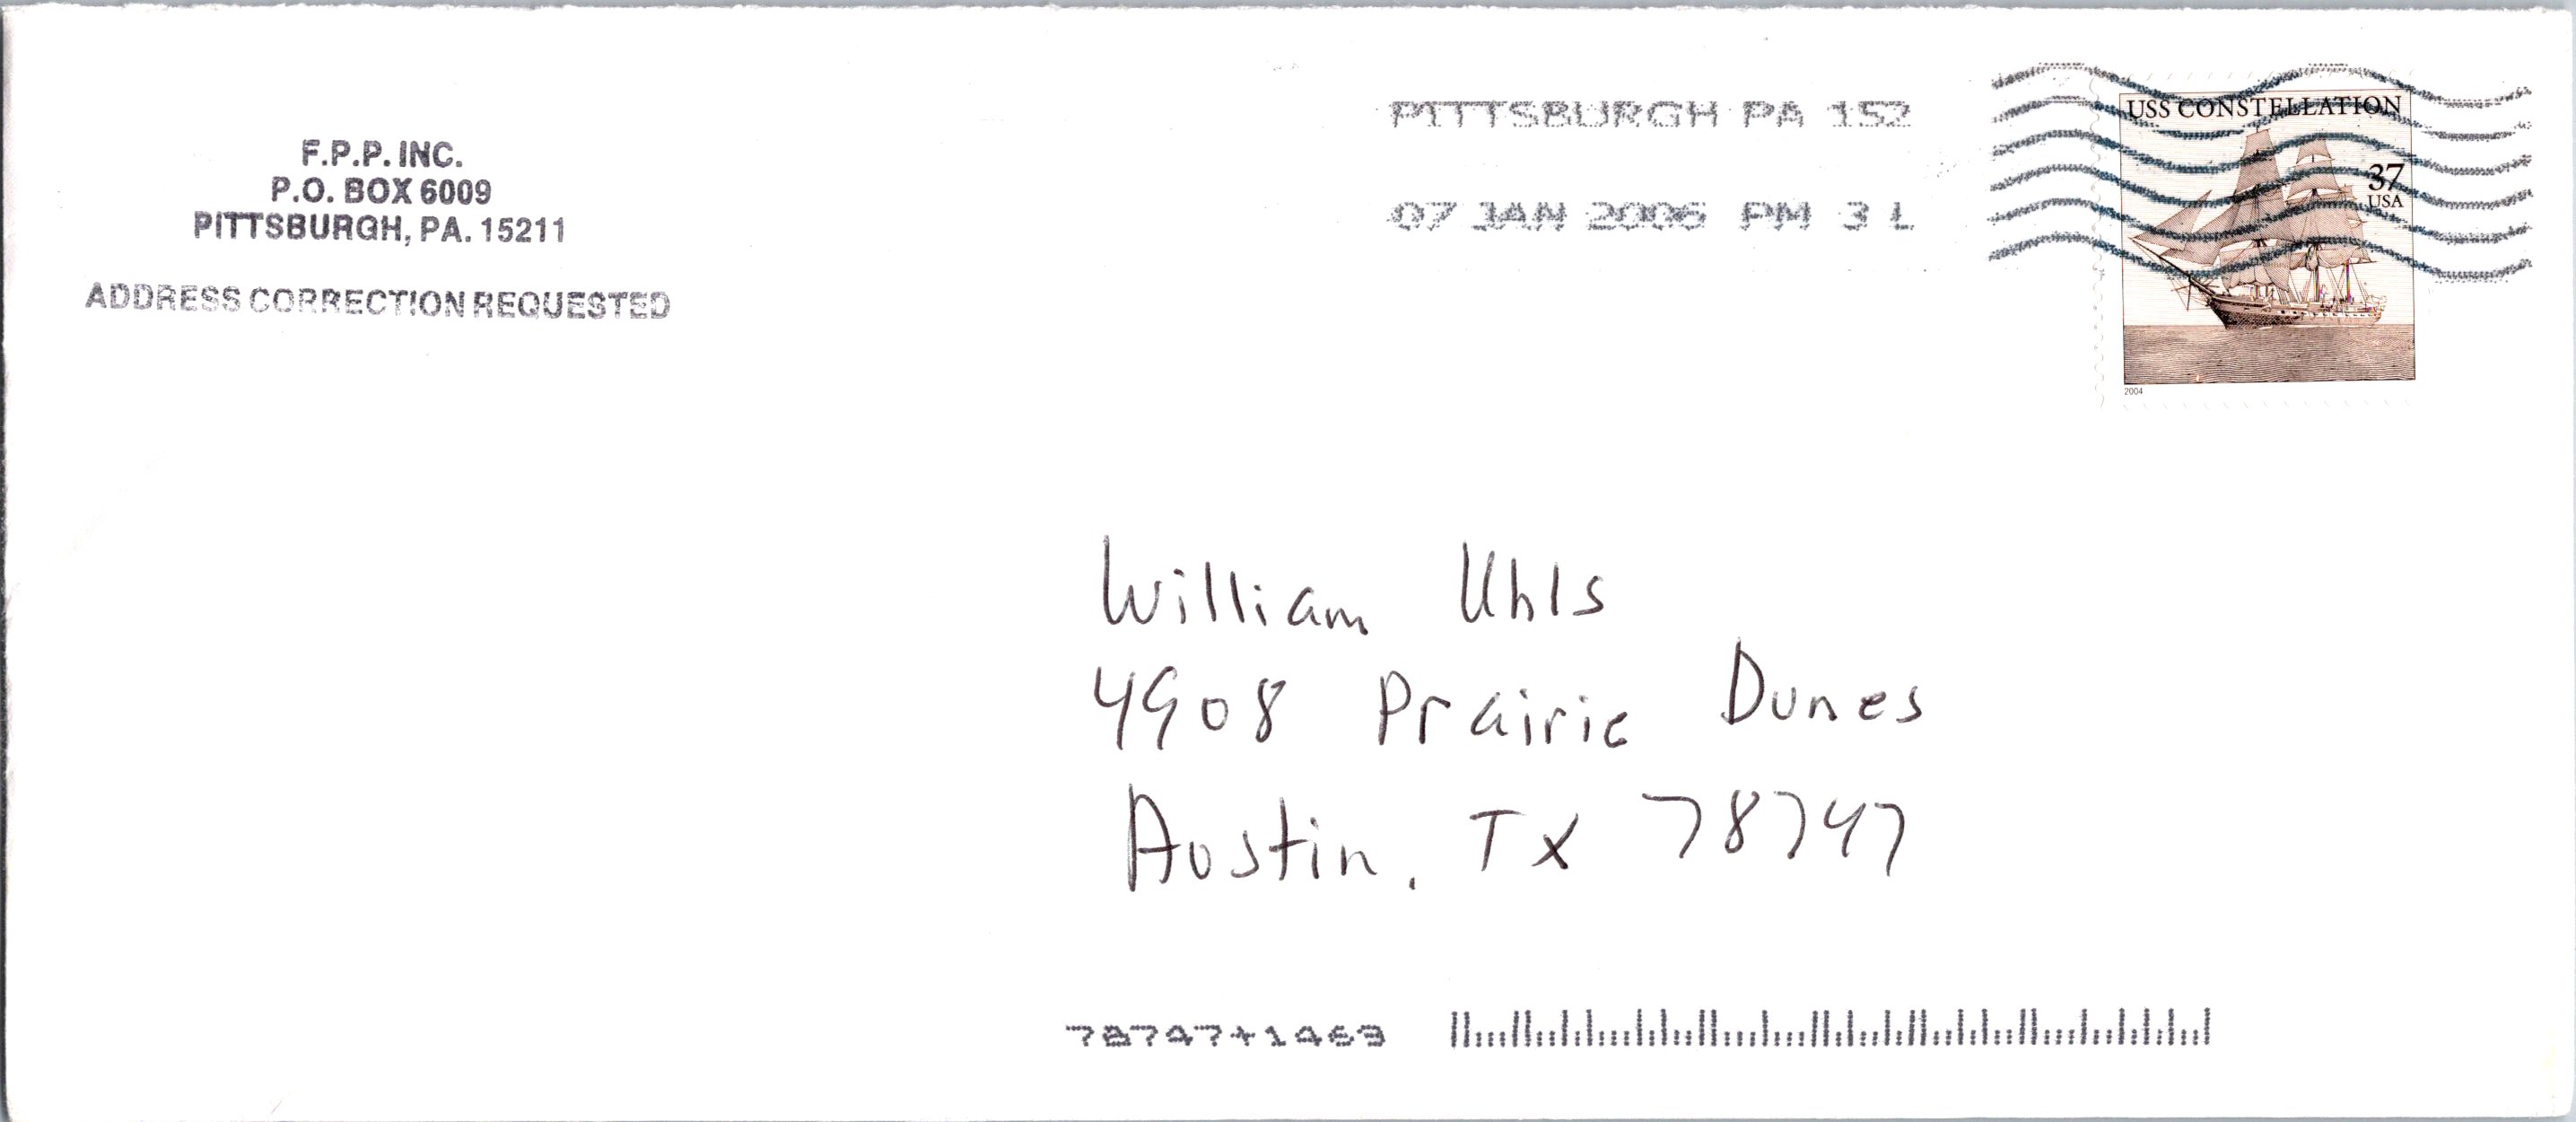 F.P.P. INC.
P.O. BOX 6009
PITTSBURGH, PA. 15211
ADDRESS CORRECTION REQUESTED
PITTSBURGH PA 152
07 JAN 2006 PM 3 L
USS CONSTELLATION
37
USA
2004
William Uhls
4908 Prairie Dunes
Austin, TX 78747
78747+1463